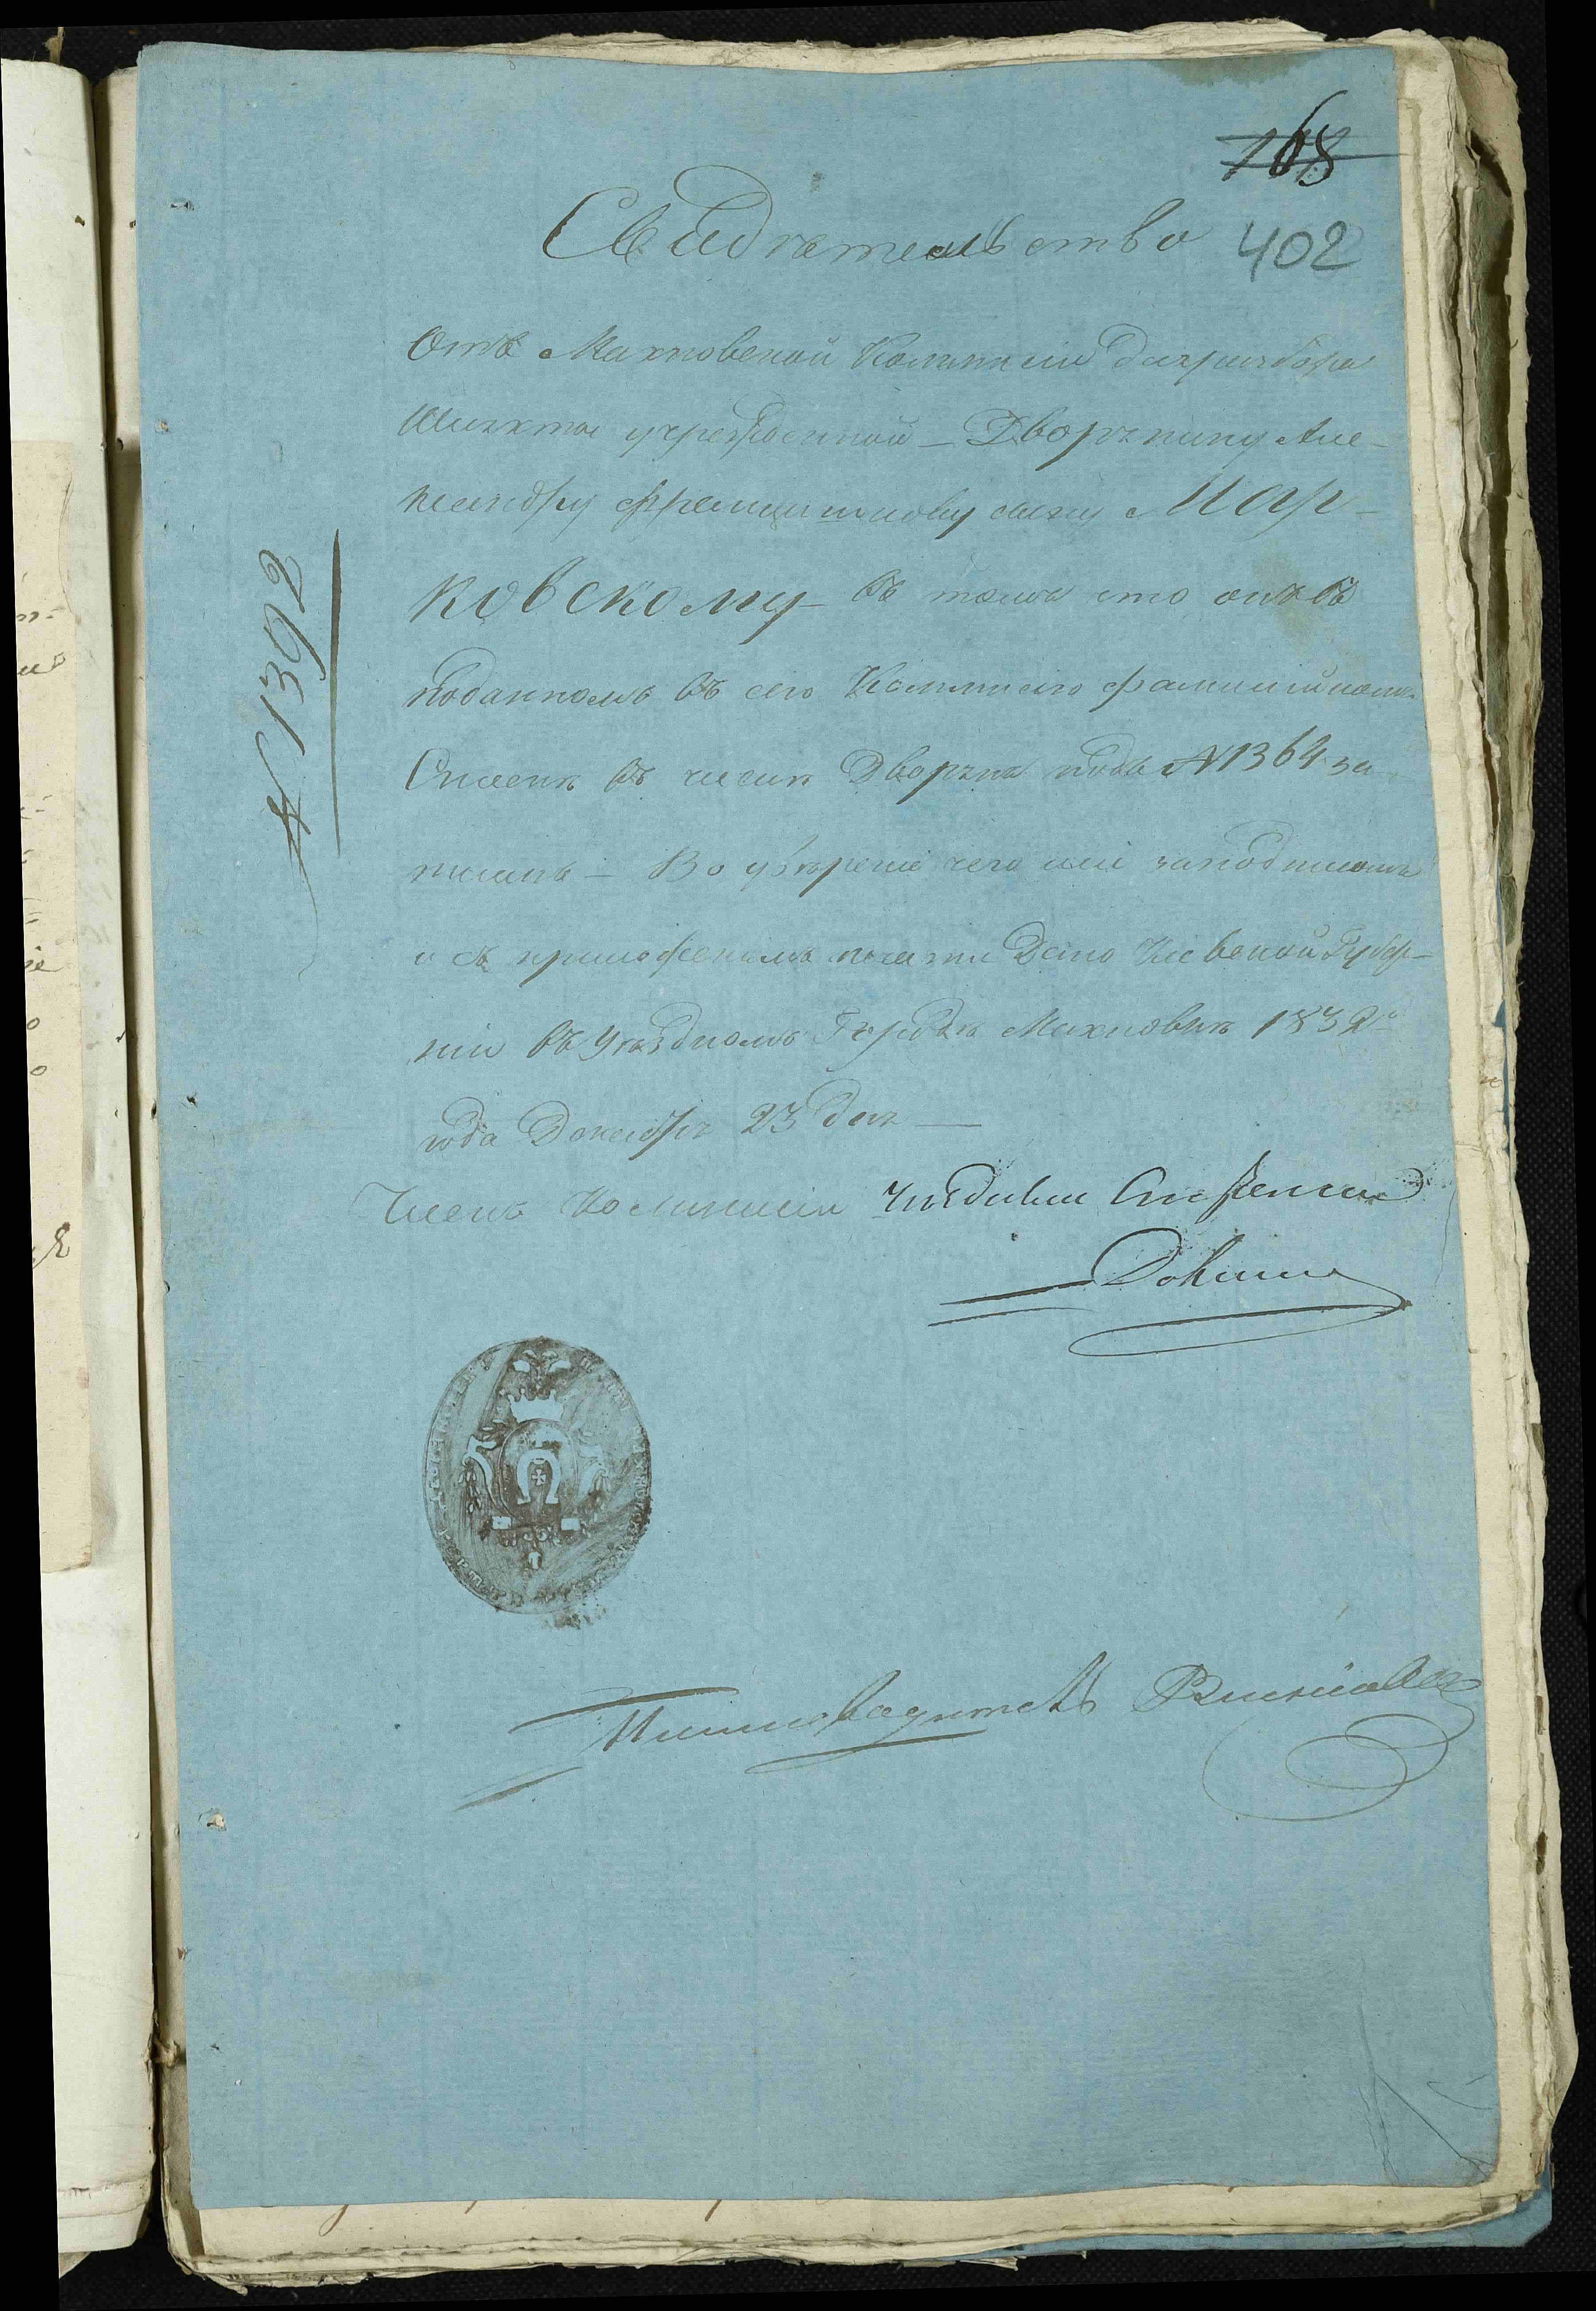 168
402
Свидѣтельство
Отъ Махновской Коммисіи для разбора
Шляхты учрежденной – Дворянину Але-
ксандру Францишкову сыну Мар-
ковскому – въ томъ что онъ въ
поданномъ въ сею Коммисію фамилійномъ
Спискѣ въ числѣ Дворянъ подъ № 1364 за-
писанъ – Во увѣреніе чего или за подписомъ
и съ приложеніемъ печати Дано Кіевской Губер-
ніи въ Уѣздномъ Городѣ Махновкѣ 1832го
года Декабря 23 дня —
№ 1392
Членъ Коммисіи
Писмоводитель